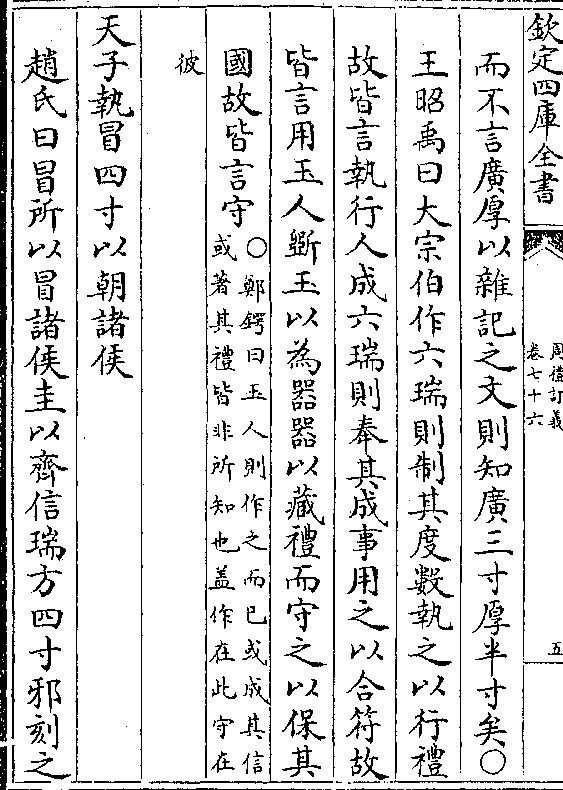 欽定四庫全書
周禮訂義
卷七十六
五
而不言廣厚以雜記之文則知廣三寸厚半寸矣○
王昭禹曰大宗伯作六瑞則制其度數執之以行禮
故皆言執行人成六瑞則奉其成事用之以合符故
皆言用玉人斵玉以為器器以藏禮而守之以保其
國故皆言守○鄭鍔曰玉人則作之而已或成其信
或著其禮皆非所知也盖作在此守在
彼
天子執冒四寸以朝諸侯
趙氏曰冒所以冒諸侯圭以齊信瑞方四寸邪刻之